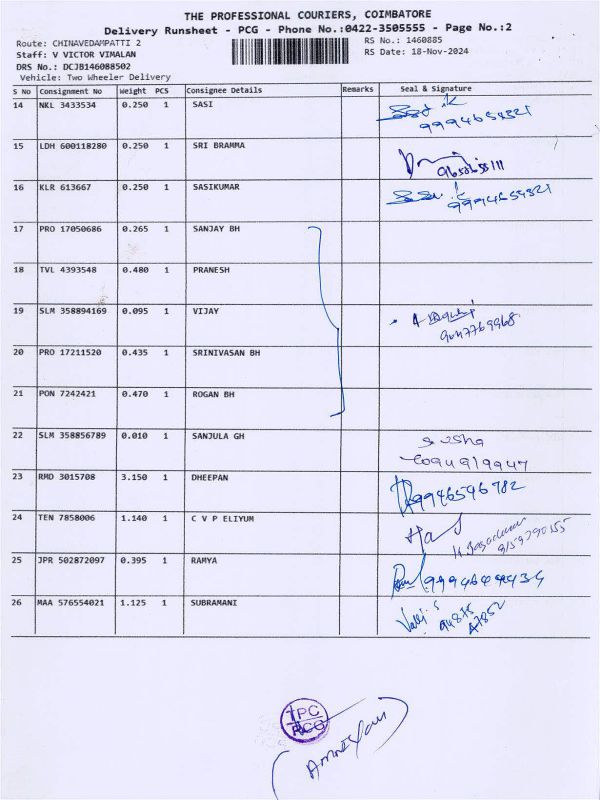 THE PROFESSIONAL COURIERS, COIMBATORE
Delivery Runsheet - PCG - Phone No.:0422-3505555 - Page No.:2
Route: CHINAVEDAMPATTI 2 RS No.: 1460885
Staff: V VICTOR VIMALAN RS Date: 18-Nov-2024
DRS No.: DCJB146088502
Vehicle: Two Wheeler Delivery
S No Consignment No Weight PCS Consignee Details Remarks Seal & Signature
14 NKL 3433534 0.250 1 SASI
9994654321
15 LDH 600118280 0.250 1 SRI BRAMMA
16 KLR 613667 0.250 1 SASIKUMAR
9994654321
17 PRO 17050686 0.265 1 SANJAY BH
18 TVL 4393548 0.480 1 PRANESH
19 SLM 358894169 0.095 1 VIJAY
9047769968
20 PRO 17211520 0.435 1 SRINIVASAN BH
21 PON 7242421 0.470 1 ROGAN BH
22 SLM 358856789 0.010 1 SANJULA GH
23 RMD 3015708 3.150 1 DHEEPAN 9946546782
24 TEN 7858006 1.140 1 C V P ELIYUM
9159790155
25 JPR 502872097 0.395 1 RAMYA
26 MAA 576554021 1.125 1 SUBRAMANI
94875
47852
TPC
PCG